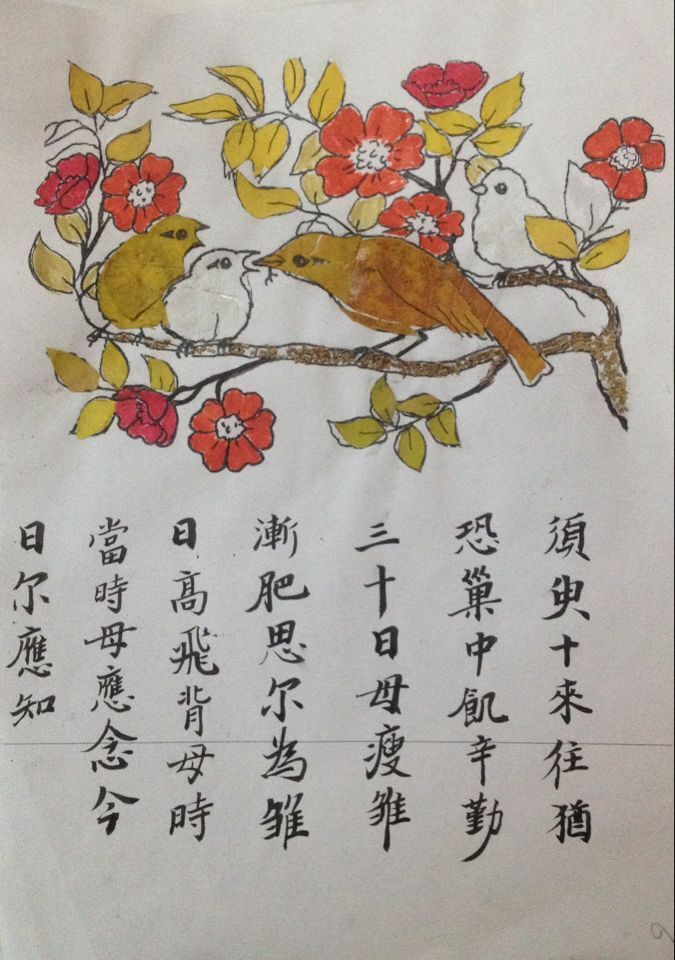 須臾十來往猶
恐巢中飢辛勤
三十日母瘦雛
漸肥思尔為雛
日高飛背母時
當時母應念今
日尔應知
9